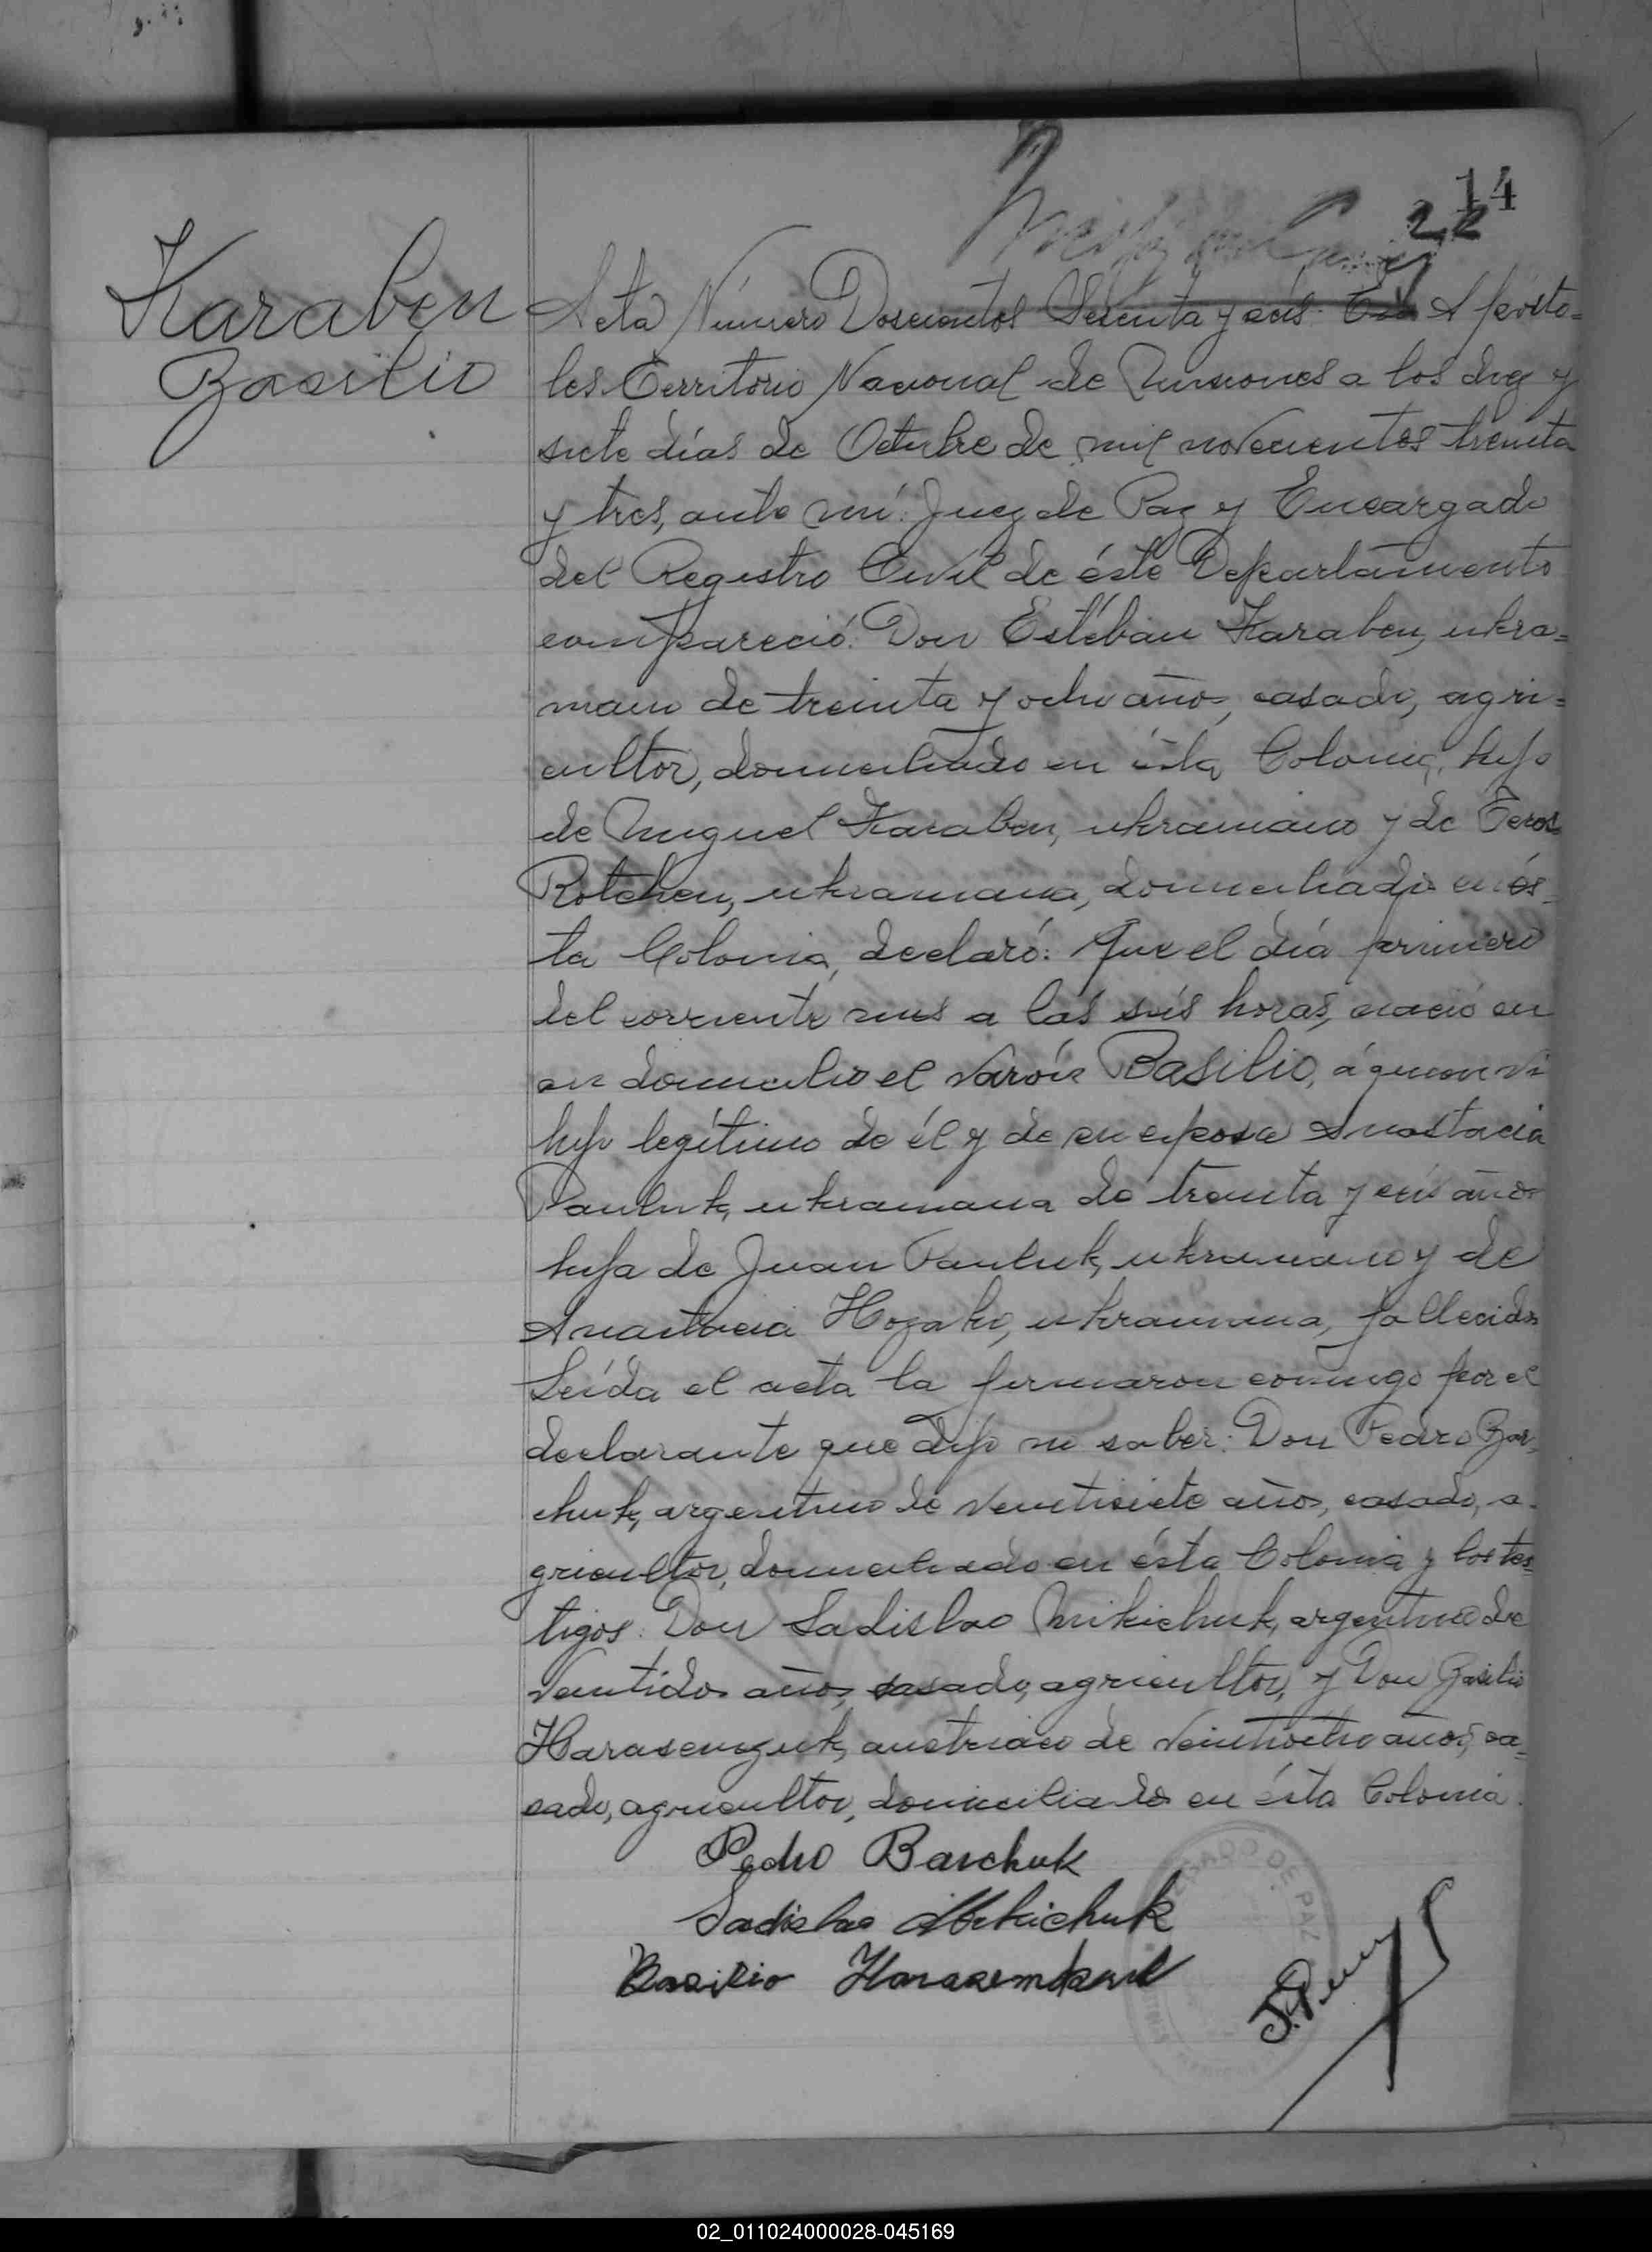 14
22
Karaben
Basilio
Acta Número Doscientos Sesenta y seis. En Apósto=
les Territorio Nacional de Misiones a los diez y
siete días de Octubre de mil novecientos treinta
y tres, ante mí: Juez de Paz y Encargado
del Registro Civil de éste Departamento
compareció: Don Estéban Karaben, ukra=
niano de treinta y ocho años, casado, agri=
cultor, domiciliado en ésta Colonia, hijo
de Miguel Karaben, ukraniano y de
Rotchen, ukraniana, domiciliado en és=
ta Colonia, declaró: Que el día primero
del corriente mes a las seis horas, nació en
su domicilio el varón Basilio, á quien vi
hijo legítimo de él y de su esposa Anastacia
Pauluk, ukraniana de treinta y seis años
hija de Juan Pauluk, ukraniano y de
Anastacia Hozako, ukraniana, fallecidos
Leída el acta la firmaron conmigo por el
declarante que dijo no saber: Don Pedro Bar=
chuk, argentino de veintisiete años, casado, a=
gricultor, domiciliado en ésta Colonia y los tes=
tigos: Don Ladislao Mikichuk, argentino de
veintidos años, casado, agricultor, y Don Basilio
Harasemzuk, austriaco de veintiocho años, ca=
sado, agricultor, domiciliados en ésta Colonia.
Pedro Barchuk
Ladislao Mikichuk
Basilio
JUZGADO DE PAZ
02_011024000028-045169